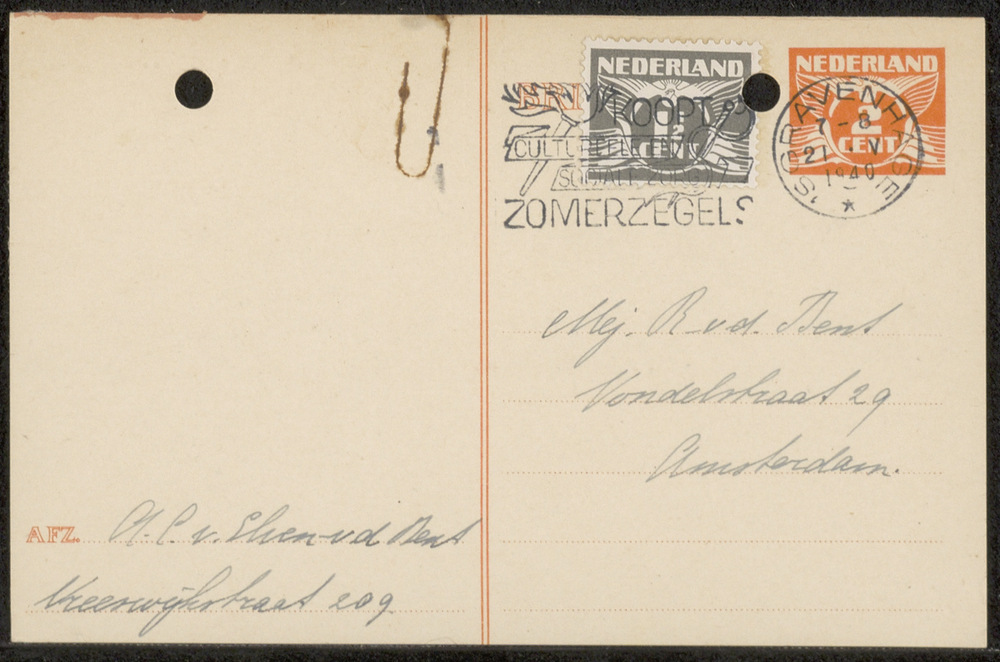 NEDERLAND
1½
CENT
NEDERLAND
2
CENT
BRI
KOOPT
CULTUREELE EN
SOCIALE ZORG
ZOMERZEGELS
'S GRAVENHAGE
7-8
21.V
1940
Mej. R v.d. Bent
Vondelstraat 29
Amsterdam.
AFZ. A.C. v. Elsen-v d Bent
Vreeswijkstraat 209